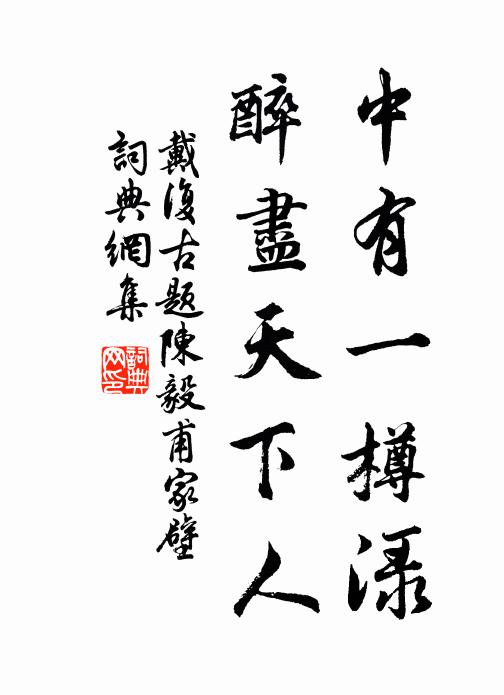 中有一樽渌
醉盡天下人
戴復古題陳毅甫家壁
詞典網集
詞典网印